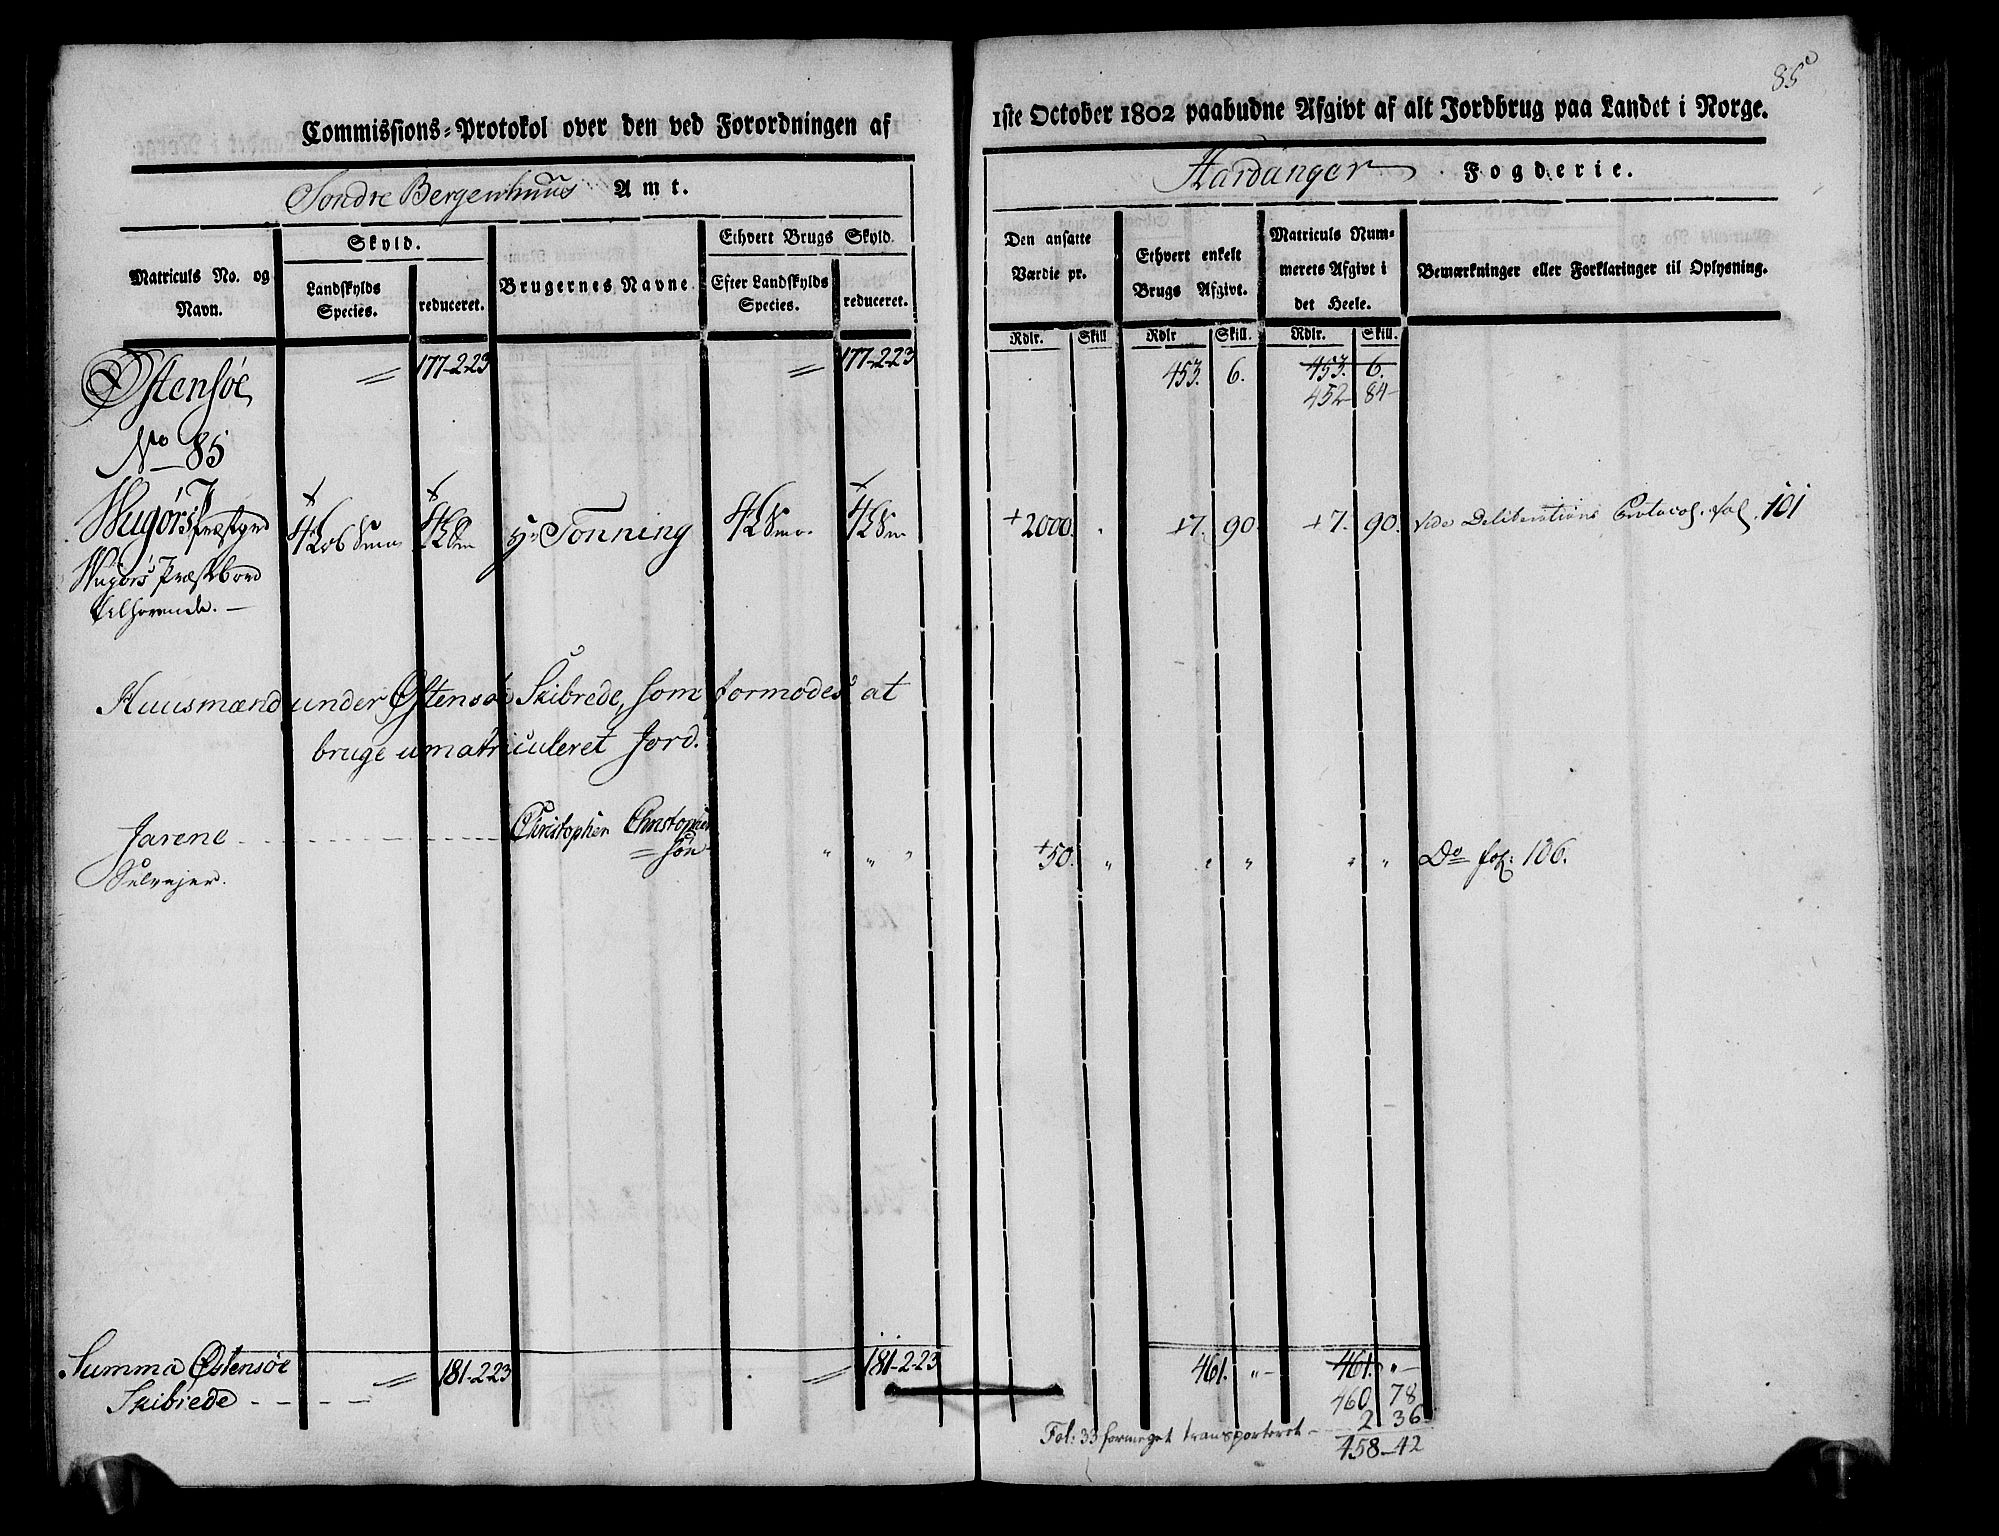 85
Commissions-Protokol over den ved Forordningen af
1ste October 1802 paabudne Afgivt af alt Jordbrug paa Landet i Norge.
Søndre Bergenhuus Amt.
Hardanger Fogderie.
Matriculs No. og Navn.
Skyld.
Landskylds Species.
reduceret.
Brugernes Navne
Ethvert Brugs Skyld.
Efter Landskylds Species.
reduceret.
Den ansatte Værdie pr.
Ethvert enkelt Brugs Afgivt.
Matriculs Nummerets Afgivt i det Heele.
Bemærkninger eller Forklaringer til Oplysning.
Rdlr. Skill. Rdlr Skill. Rdlr. Skill.
Østensøe 177-2-23 177-2-23 453. 6. 453. 6.
452 84
No 85
Præstgrd 4 4 Hr Tonning 4 4 +2000. +7. 90. +7. 90. vide Deliberations Protocol. fol. 101
Præstebord
tilhørende.
Huusmænd under Østensøe Skibrede, som formodes at
bruge umatriculeret Jord.
Jarene Christopher Christopher
søn +50. " " " " " Do fol: 106.
Selvejer.
Summa Østensøe 181-2-23 181-2-23 461. " 461. "
Skibrede 460 78
2 36
Fol: 33 formeget transporteret 458-42